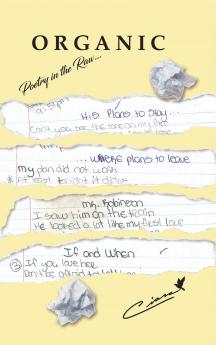 ORGANIC
Poetry in the Raw...
His Plans to Stay...
Can't you see the tone on my face
...where plans to leave
my plan did not work
* at least tonight it didn't
Mr. Robinson
I saw him on the train
He looked a lot like my first love
If and When
③ If you love her
Don't be afraid to
Ciara